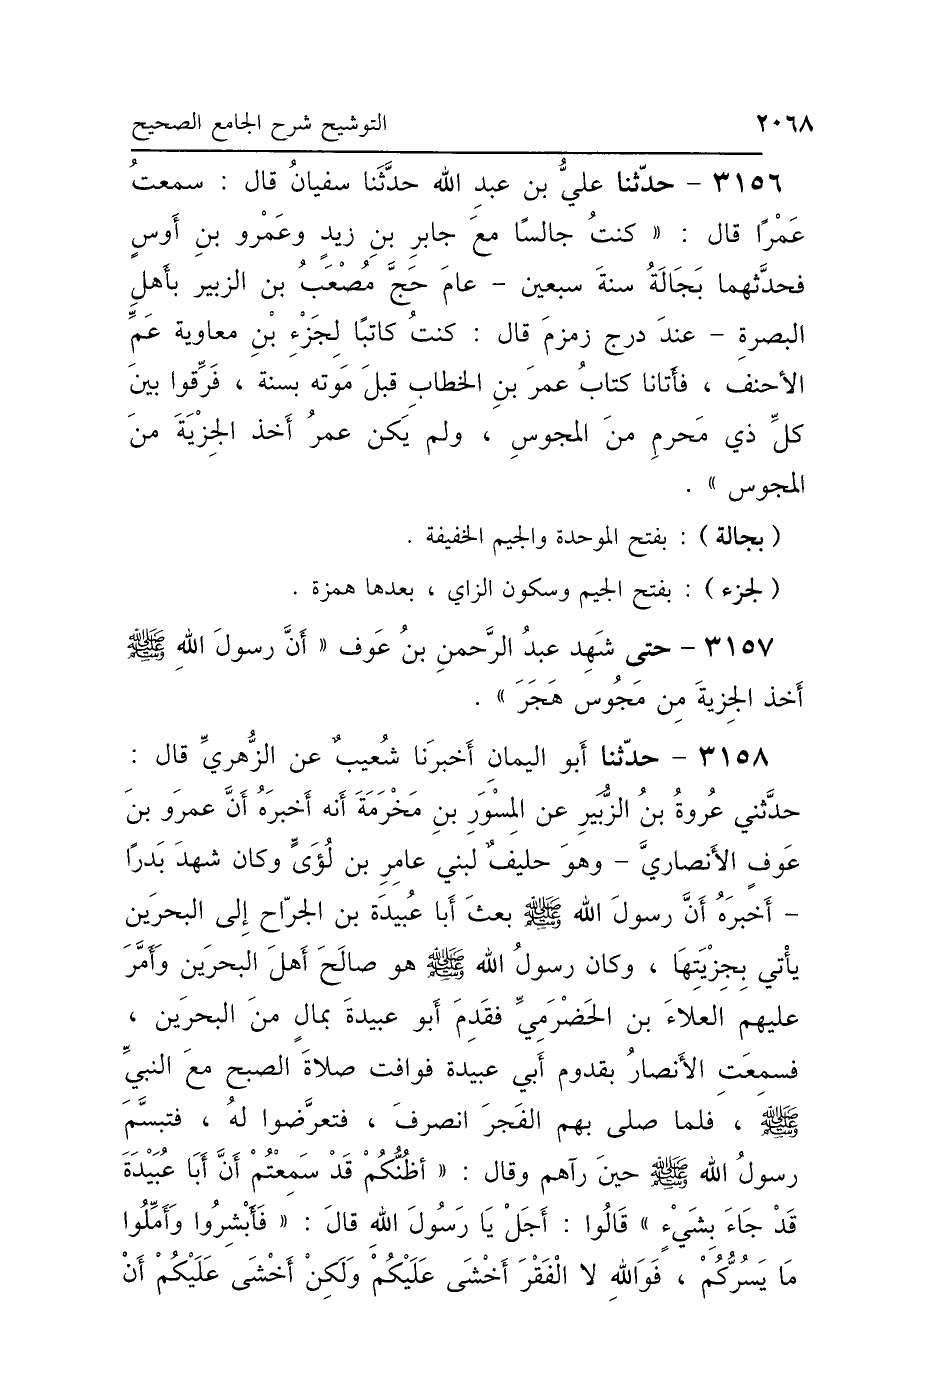 ٢٠٦٨ التوشيح شرح الجامع الصحيح
٣١٥٦ – حدّثنا عليُّ بن عبدِ الله حدَّثَنا سفيانُ قال : سمعتُ
عَمْرًا قال : « كنتُ جالسًا معَ جابرِ بنِ زيدٍ وعَمْرو بنِ أَوسٍ
فحدَّثهما بَجَالَةُ سنةَ سبعين – عامَ حَجَّ مُصْعَبُ بن الزبير بأَهلِ
البصرةِ – عندَ درج زمزمَ قال : كنتُ كاتبًا لِجَزْءِ بْنِ معاوية عَمِّ
الأحنف ، فأَتانا كتابُ عمرَ بنِ الخطابِ قبلَ مَوته بسنة ، فَرِّقوا بينَ
كلِّ ذي مَحرمِ منَ المجوسِ ، ولم يَكن عمرُ أَخذ الجِزْيَةَ منَ
المجوس » .
( بجالة ) : بفتح الموحدة والجيم الخفيفة .
( لجزء ) : بفتح الجيم وسكون الزاي ، بعدها همزة .
٣١٥٧ – حتى شَهِد عبدُ الرَّحمنِ بنُ عَوف « أَنَّ رسولَ اللهِ ﷺ
أَخذ الجِزيةَ مِن مَجُوس هَجَرَ » .
٣١٥٨ – حدّثنا أَبو اليمانِ أَخبرَنا شُعيبٌ عن الزُّهريِّ قال :
حدَّثني عُروةُ بنُ الزُّبَيرِ عن المِسْوَرِ بنِ مَخْرَمَةَ أنه أَخبرَهُ أَنَّ عمرَو بنَ
عَوفٍ الأَنصاريَّ – وهوَ حليفٌ لبني عامرِ بن لُؤَىٍّ وكان شهدَ بَدرًا
– أَخبرَهُ أَنَّ رسولَ الله ﷺ بعثَ أَبا عُبيدَة بن الجرّاحِ إلى البحرَين
يأْتي بِجِزْيَتِهَا ، وكان رسولُ الله ﷺ هو صالَحَ أَهلَ البحرَين وَأَمَّرَ
عليهم العلاءَ بن الحَضْرَميِّ فقَدِمَ أَبو عبيدةَ بمالٍ منَ البحرَين ،
فسمعَتِ الأَنصارُ بقدوم أَبي عبيدة فوافت صلاةَ الصبح معَ النبيِّ
ﷺ ، فلما صلى بهم الفَجرَ انصرفَ ، فتعرَّضوا لهُ ، فتبسَّمَ
رسولُ الله ﷺ حينَ رآهم وقال : « أَظُنُّكُمْ قَدْ سَمِعْتُمْ أَنَّ أَبَا عُبَيْدَةَ
قَدْ جَاءَ بِشَيْءٍ » قَالُوا : أَجَلْ يَا رَسُولَ اللهِ قالَ : « فَأَبْشِرُوا وَأَمِّلُوا
مَا يَسُرُّكُمْ ، فَوَاللهِ لا الْفَقْرَ أَخْشَى عَلَيْكُمْ وَلَكِنْ أَخْشَى عَلَيْكُمْ أَنْ